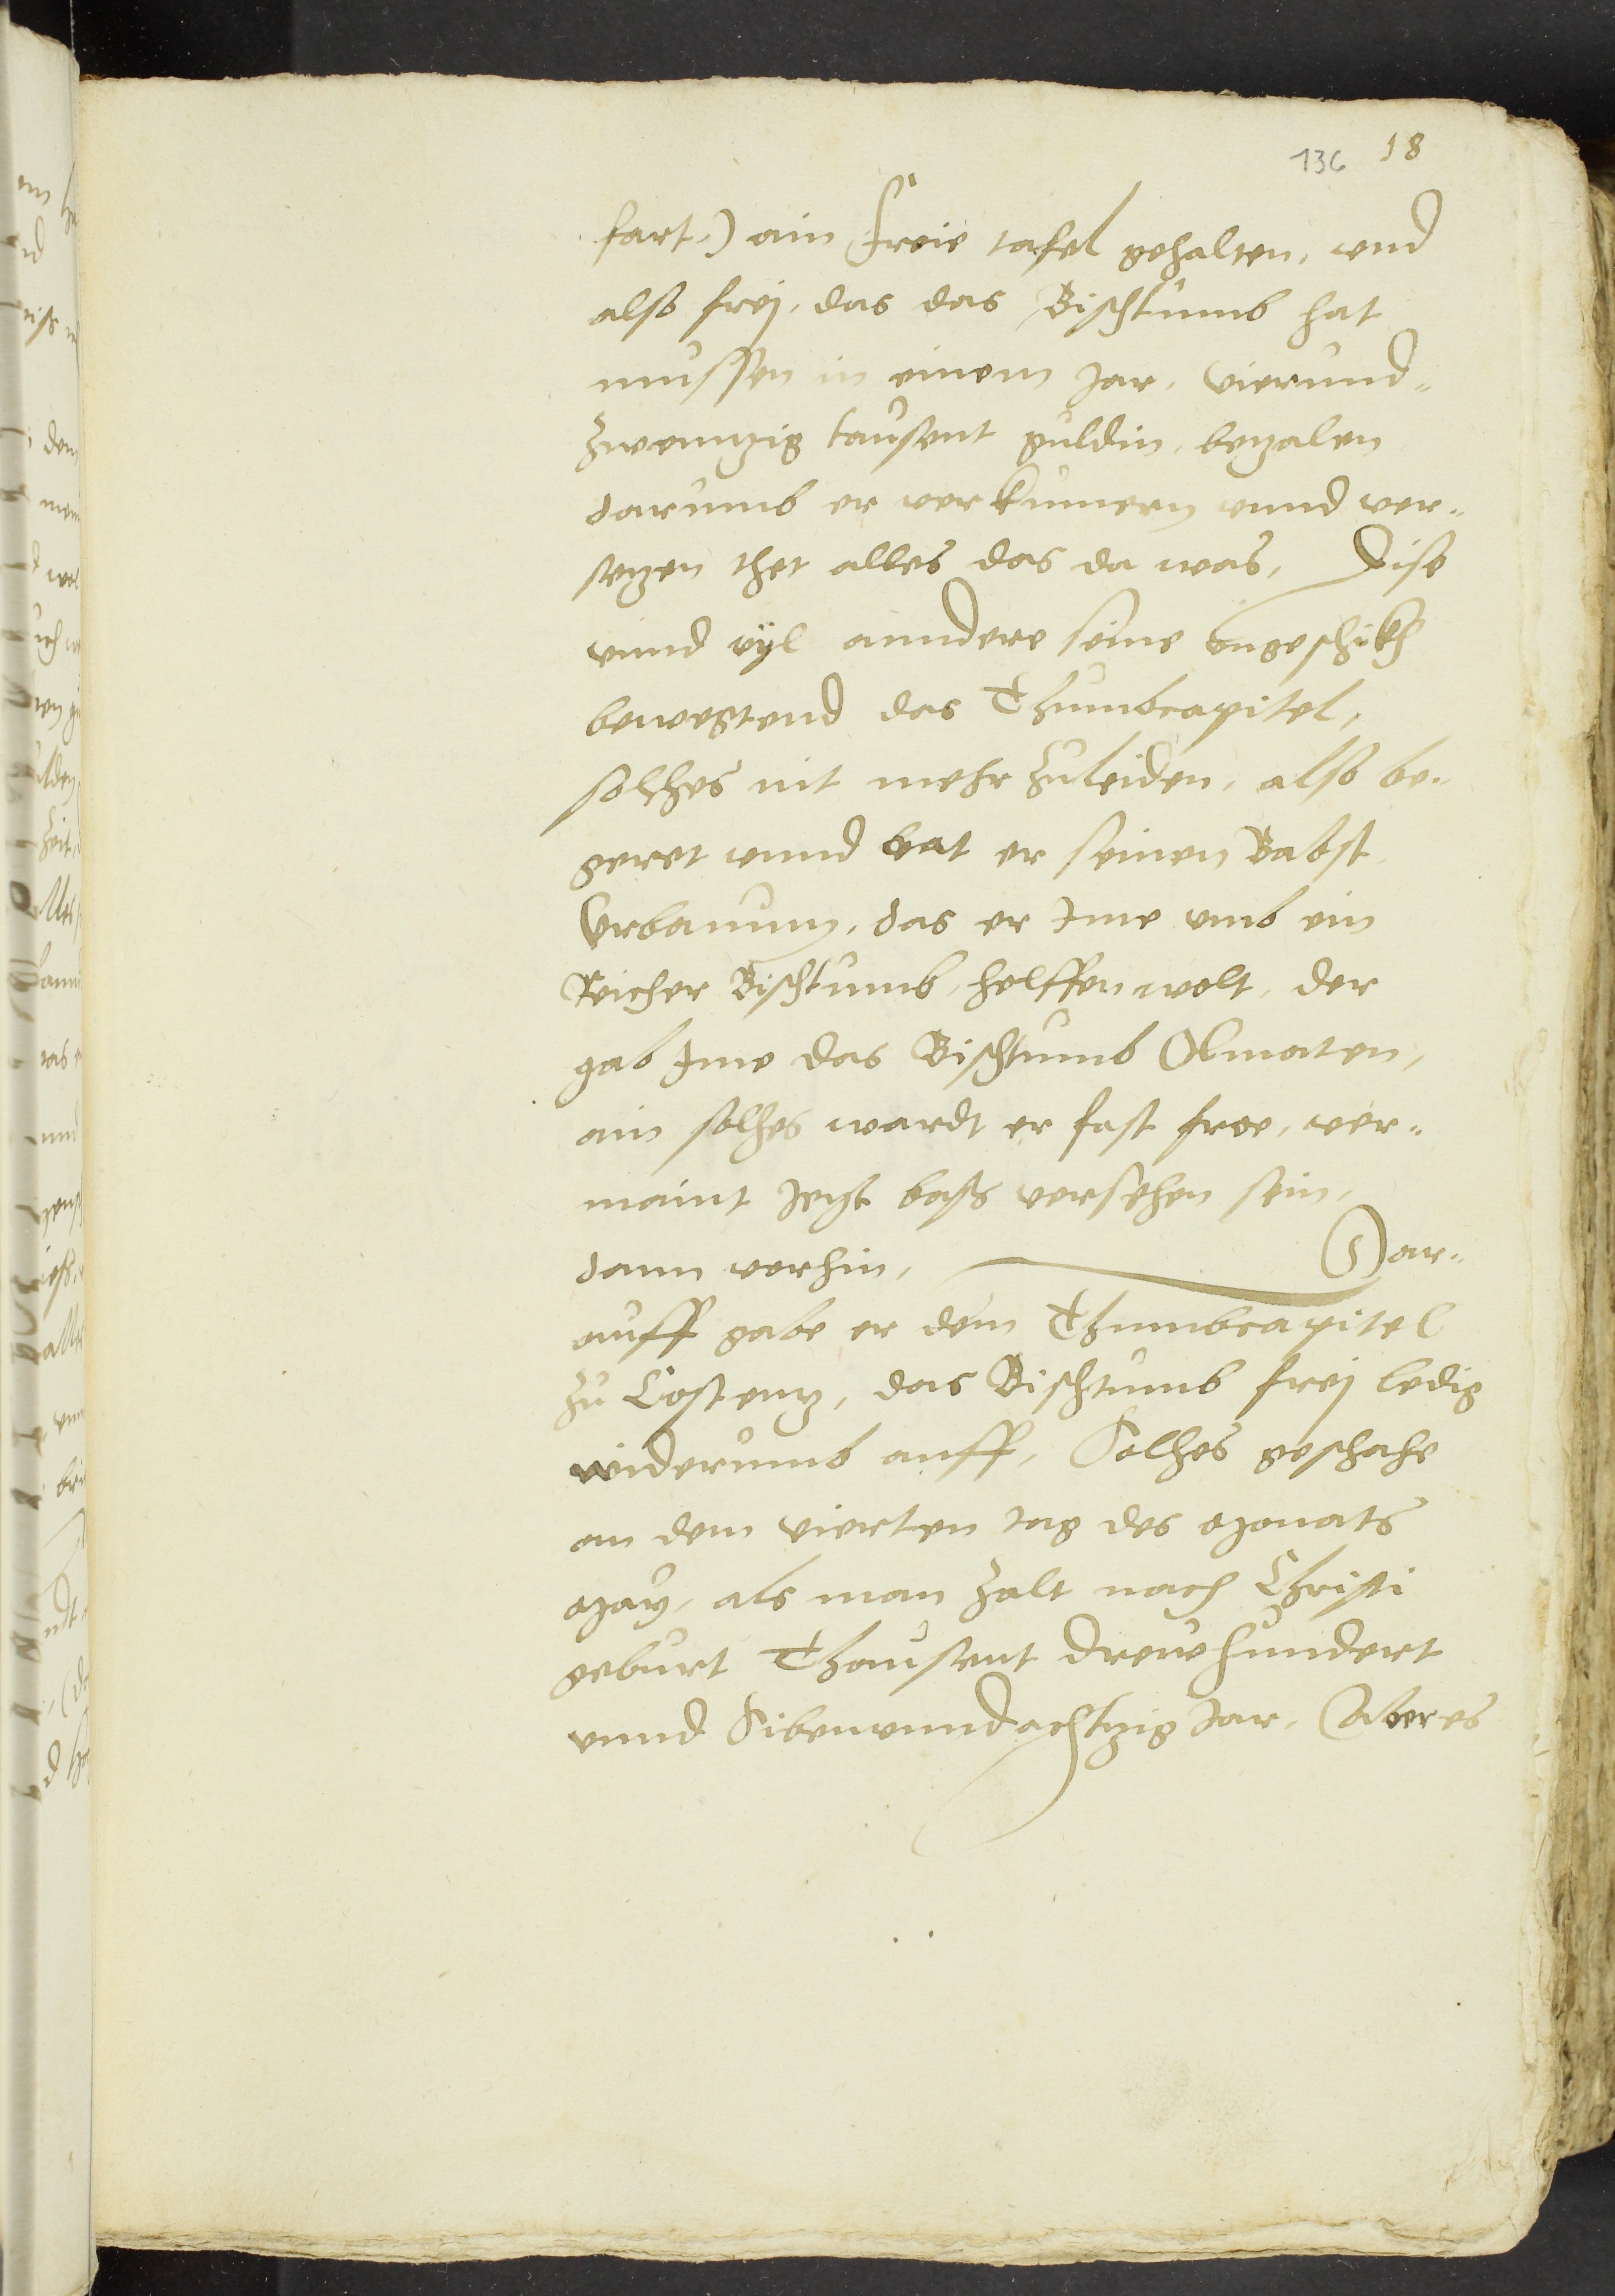 136 18
fart,) ain freie tafel gehalten, vnd
also frej, das das Bischtumb hat
mussen in einem Jar, vierund=
zwenntzig tausent guldin, betzalen
darumb er verkumern vnnd ver=
setzen thet alles das da was, Dise
vnnd vyl anndere seine vngeschikh
bewegtend das Thumbcapitel,
solches nit mehr zuleiden, also be=
geret vnnd bat er seinen Babst
Vrbanum, das er Jme vmb ein
Reicher Bischtumb, helffen wolt, der
gab Jme das Bischtumb Olmaten,
ain solhes wardt er fast froe, ver=
maint Jetzt bass versehen sein,
dann vorhin, Dar=
auff gabe er dem Thumbcapitel
zu Costentz, das Bischtumb frej ledig
widerumb auff, Solhes geschahe
an dem vierten tag des Monats
May, als man zalt nach Christi
geburt Thausent drewhundert
vnnd Sibenvnndachtzig Jar, Aber es